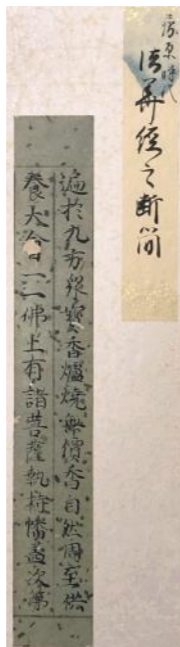 藤原時代
法華経之断簡
遍於九方衆寶香爐燒無價香自然周至供
養大會一一佛上有諸菩薩執持幡蓋次第